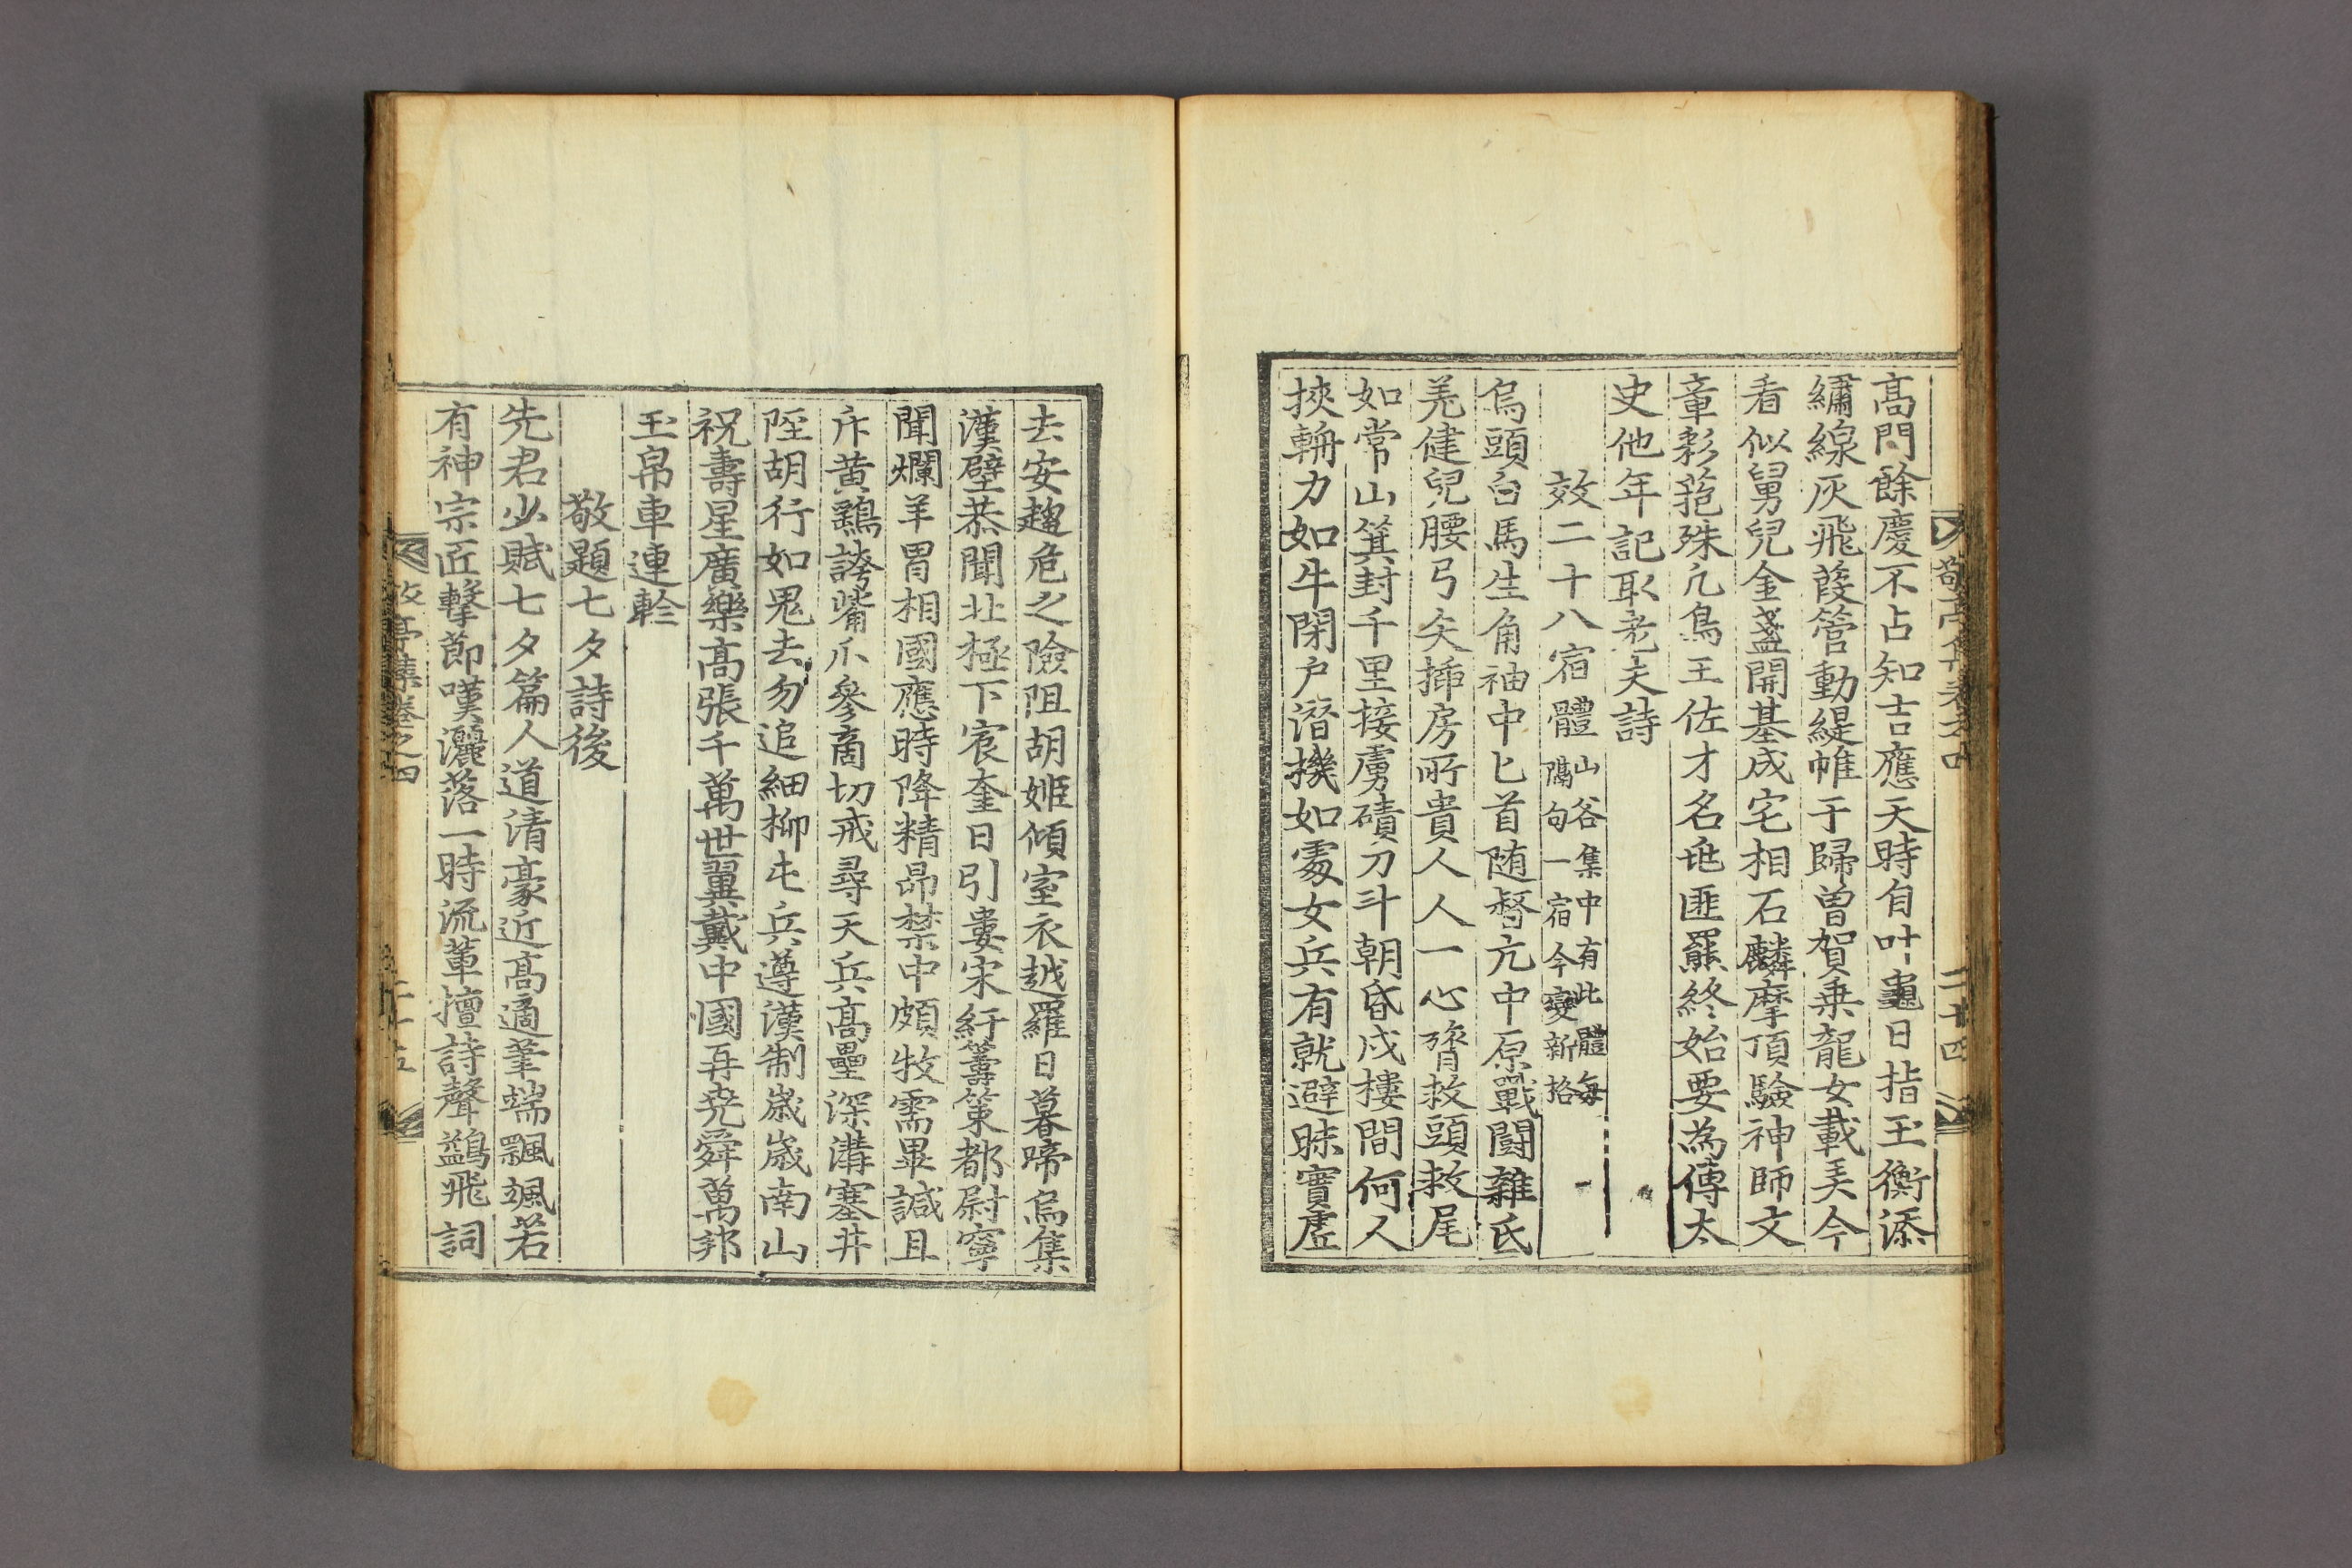 敬亭集卷之四
二十四
高門餘慶不占知吉應天時自叶龜日指玉衡添
繡線灰飛葭管動緹帷于歸曾賀乗龍女載羙今
看似舅兒金盞開基成宅相石麟摩頂驗神師文
章彩䓟殊凢鳥王佐才名庇匪羆終始要為傅太
史他年記取老夫詩
效二十八宿體山谷集中有此體每
隔句一宿今變新格
烏頭白馬生角袖中匕首随督亢中原戰闘雜氐
羌健兒腰弓矢揷房所貴人人一心膂救頭救尾
如常山箕封千里接虜磧刀斗朝昏戍樓間何人
挾輈力如牛閉户潛機如䖏女兵有就避昧實虛
去安趨危之險阻胡姬傾室衣越羅日暮啼烏集
漢壁恭聞北極下宸奎日引婁宋紆籌策都尉寧
聞爛羊胃相國應時降精昴禁中頗牧需畢諴且
斥黄鷄誇觜爪參商切戒尋天兵高壘深溝塞井
陘胡行如鬼去勿追細柳屯兵遵漢制歲歲南山
祝壽星廣樂高張千萬世翼戴中國再堯舜萬邦
玉帛車連軫
敬題七夕詩後
先君少賦七夕篇人道清豪近高適筆端飄颯若
有神宗匠擊節嘆灑落一時流輩擅詩聲鷁飛詞
敬亭集卷之四
二十五